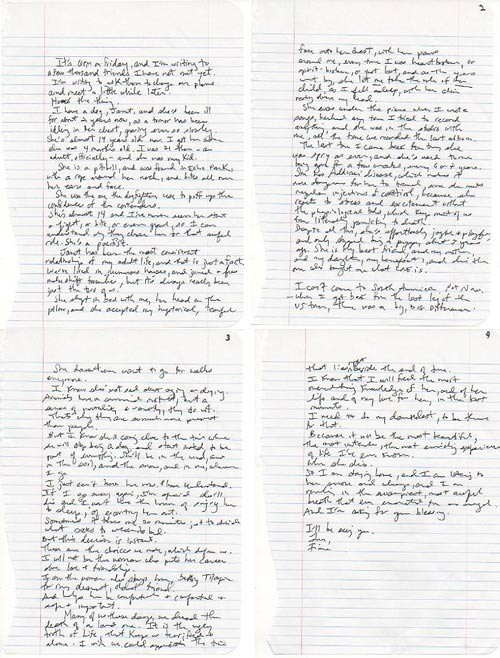 It's 6pm on Friday, and I'm writing to
a few thousand friends I have not met yet.
I'm writing to ask them to change our plans
and meet a little while later.
Here's the thing.
I have a dog, Janet, and she's been ill
for about 2 years now, as a tumor has been
idling in her chest, growing ever so slowly.
She's almost 14 years old now. I got her when
she was 4 months old. I was 21 then – an
adult, officially – and she was my kid.
She is a pitbull, and was found in Echo Park,
with a rope around her neck, and bites all over
her ears and face.
She was the one the dogfighters use to puff up the
confidence of the contenders.
She's almost 14 and I've never seen her start
a fight, or bite, or even growl, so I can
understand why they chose her for that awful
role. She's a pacifist.
Janet has been the most consistent
relationship of my adult life, and that is just a fact.
We've lived in numerous houses, and joined a few
makeshift families, but it's always really been
just the two of us.
She slept in bed with me, her head on the
pillow, and she accepted my hysterical, tearful
2
face into her chest, with her paws
around me, every time I was heartbroken, or
spirit-broken, or just lost, and as the years
went by, she let me take the role of her
child, as I fell asleep, with her chin
resting above my head.
She was under the piano when I wrote
songs, barked any time I tried to record
anything, and she was in the studio with
me, all the time we recorded the last album.
The last time I came back from tour, she
was spry as ever, and she's used to me
being gone for a few weeks, every 6 or 7 years.
She has Addison's Disease, which makes it
more dangerous for her to travel, since she needs
regular injections of Cortisol, because she
reacts to stress and excitement without
the physiological tools which keep most of us
from literally panicking to death.
Despite all this, she's effortlessly joyful & playful,
and only stopped being a puppy about 3 years
ago. She is my best friend, and my mother,
and my daughter, my benefactor, and she's the
one who taught me what love is.
I can't come to South America. Not now.
When I got back from the last leg of the
US tour, there was a big, big difference.
3
She doesn't even want to go for walks
anymore.
I know she's not sad about aging or dying.
Animals have a survival instinct, but a
sense of mortality & vanity, they do not.
That's why they are so much more present
than people.
But I know she's coming close to the time where
she will stop being a dog, and start instead to be
part of everything. She'll be in the wind, and
in the soil, and the snow, and in me, wherever
I go.
I just can't leave her now, please understand.
If I go away again, I'm afraid she'll
die and I won't have the honor of singing her
to sleep, of escorting her out.
Sometimes it takes me 20 minutes just to decide
what socks to wear to bed.
But this decision is instant.
These are the choices we make, which define us.
I will not be the woman who puts her career
ahead of love & friendship.
I am the woman who stays home, baking Tilapia
for my dearest, oldest friend.
And helps her be comfortable & comforted &
safe & important.
Many of us these days, we dread the
death of a loved one. It is the ugly
truth of Life that keeps us terrified &
alone. I wish we could also appreciate the time
4
that lies right beside the end of time.
I know that I will feel the most
overwhelming knowledge of her, and of her
life and of my love for her, in the last
moments.
I need to do my damnedest, to be there
for that.
Because it will be the most beautiful,
the most intense, the most enriching experience
of life I've ever known.
When she dies.
So I am staying home, and I am listening to
her snore and wheeze, and I am
reveling in the swampiest, most awful
breath that ever emanated from an angel.
And I'm asking for your blessing.
I'll be seeing you.
Love,
Fiona